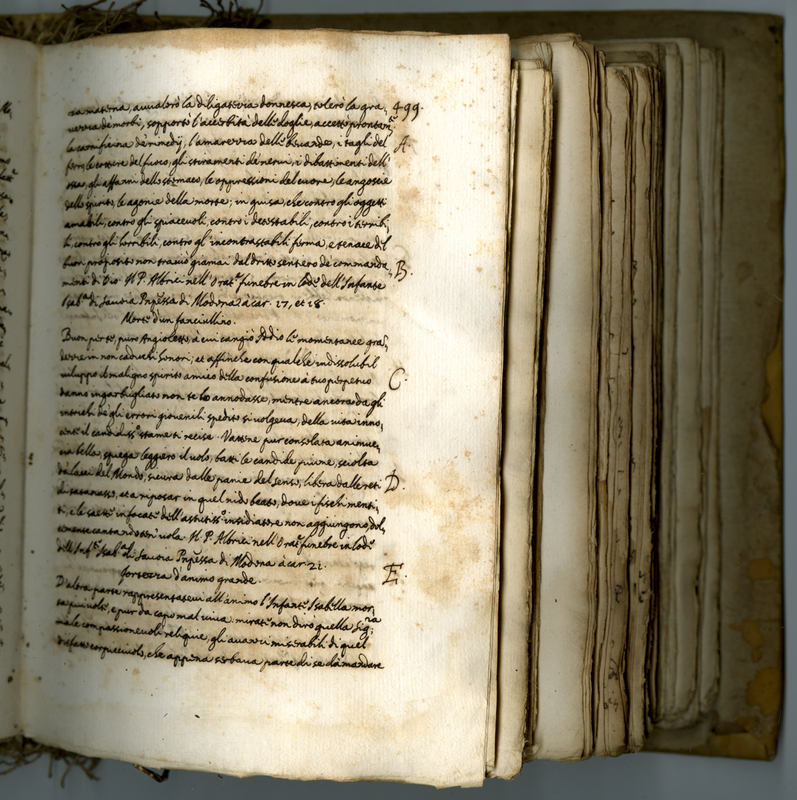 za materna, avvalorò la dilicatezza donnesca, tolerò la gra, 499.
vezza de morbi, sopportò l'acerbità delle doglie, accettò prontam.te
la carnificina de rimedij, l'amarezza delle bevande, i tagli del A.
ferro, le cotture del fuoco, gli stiramenti de nervi, i dibattimenti dell'
ossa, gli affanni dello stomaco, le oppressioni del cuore, le angoscie
dello spirito, le agonie della morte; in guisa, che contro gli oggetti
amabili, contro gli spiacevoli, contro i detestabili, contro i terribi,
li, contro gli horribili, contro gl'incontrastabili ferma, e tenace del
buon proposito non traviò giamai dal dritto sentiero de commanda, B.
menti di Dio. Il P. Albrici nell'Orat.e funebre in lode dell'Infante
Isab.a di Savoia Prñpessa di Modona à car. 27, et 28.
Morte d'un fanciullino.
Buon per te, puro Angioletto, à cui cangiò Iddio le momentanee gran,
dezze in non caduchi honori; et affinche con qualche indissolubil
viluppo il maligno spirito amico della confusione à tuo perpetuo C.
danno ingarbugliato non te lo annodasse, mentre ancora da gli
intrichi de gli errori giovenili spedito si volgeva, della vita inno,
cente il candidiss.o stame ti recise. Vattene pur consolata animuc,
cia bella, spiega leggiero il volo, batti le candide piume, sciolta
da lacci del Mondo, sicura dalle panie del senso, libera dalle reti D.
di satanasso, et a riposar in quel nido beato, dove i fischi menti,
ti, e le saette infocate dell'astutiss.o insidiatore non aggiungono, dol,
cemente cantando ten' vola. Il P. Albrici nell'Orat.e funebre in lode
dell'Inf.e Isab.a di Savoia Prñpessa di Modona à car. 21.
fortezza d'animo grande. E.
D'altra parte rappresentatevi all'animo l'Infante Isabella mor,
ta più volte, e pur da capo mal viva. mirate non dirò quella Sig.ra
ma le compassionevoli reliquie, gli avanzi miserabili di quel
disfatto corpicciuolo, che appena serbava parte di se da mandare